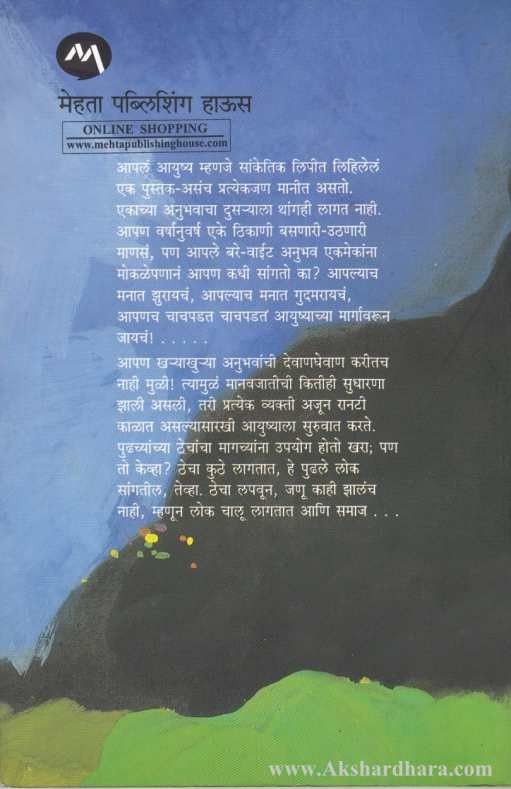 मेहता पब्लिशिंग हाऊस
ONLINE SHOPPING
www.mehtapublishinghouse.com
आपलं आयुष्य म्हणजे सांकेतिक लिपीत लिहिलेलं
एक पुस्तक-असंच प्रत्येकजण मानीत असतो.
एकाच्या अनुभवाचा दुसऱ्याला थांगही लागत नाही.
आपण वर्षानुवर्ष एके ठिकाणी बसणारी-उठणारी
माणसं, पण आपले बरे-वाईट अनुभव एकमेकांना
मोकळेपणानं आपण कधी सांगतो का? आपल्याच
मनात झुरायचं, आपल्याच मनात गुदमरायचं,
आपणच चाचपडत चाचपडत आयुष्याच्या मार्गावरून
जायचं! . . . . .
आपण खऱ्याखुऱ्या अनुभवांची देवाणघेवाण करीतच
नाही मुळी! त्यामुळं मानवजातीची कितीही सुधारणा
झाली असली, तरी प्रत्येक व्यक्ती अजून रानटी
काळात असल्यासारखी आयुष्याला सुरुवात करते.
पुढच्यांच्या ठेचांचा मागच्यांना उपयोग होतो खरा; पण
तो केव्हा? ठेचा कुठे लागतात, हे पुढले लोक
सांगतील, तेव्हा. ठेचा लपवून, जणू काही झालंच
नाही, म्हणून लोक चालू लागतात आणि समाज . . .
www.Akshardhara.com